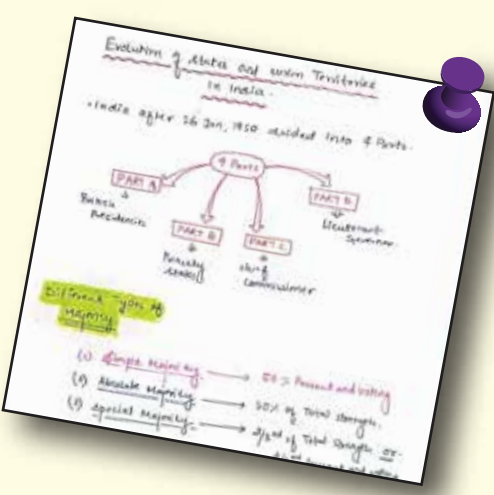 Evolution of states and union Territories
in India.
• India after 26 Jan, 1950 divided into 4 Parts.
4 Parts
PART A
PART B
PART C
PART D
British
Presidencies
Princely
states
chief
commissioner
Lieutenant
Governor
Different Types of
Majority
(1) Simple Majority → 50% Present and voting
(2) Absolute Majority → 50% of Total Strength.
(3) Special Majority → 2/3rd of Total Strength or
present and voting